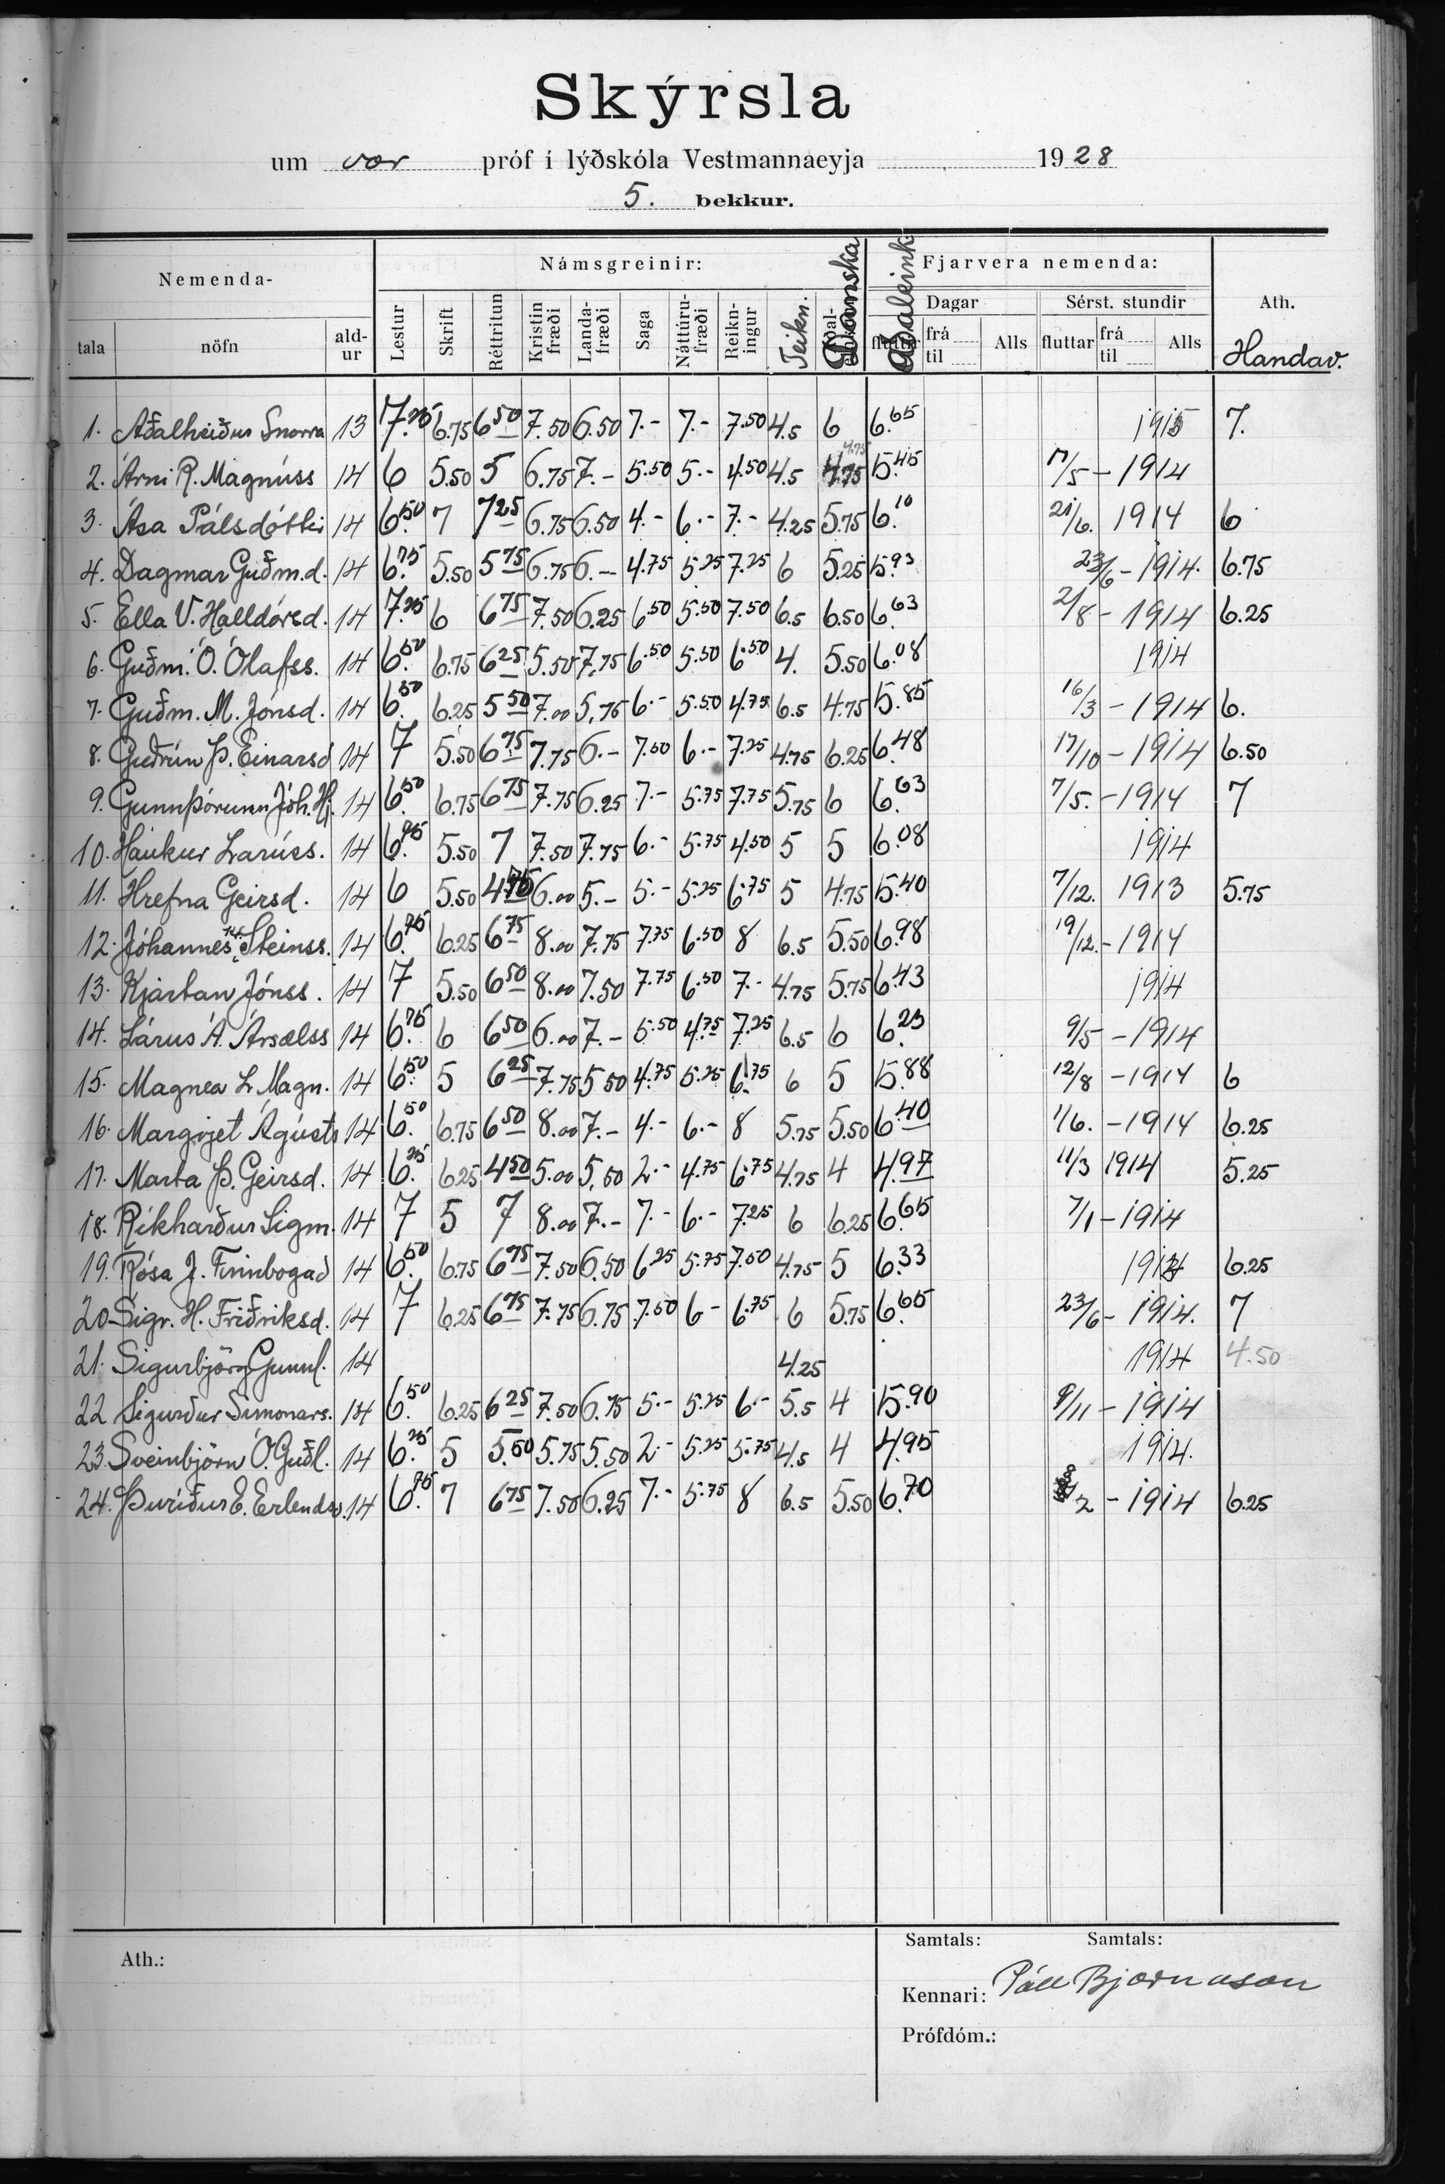 Skýrsla
um vor próf í lýðskóla Vestmannaeyja 1928
5. bekkur.
Nemenda- Námsgreinir: Danska Aðaleink Fjarvera nemenda:
Dagar Sérst. stundir Ath.
tala nöfn ald-ur Lestur Skrift Réttritun Kristinfræði Landafræði Saga Náttúru-fræði Reikn-ingur Teikn. fluttar frá til Alls fluttar frá til Alls Handav.
1. Aðalheiður Snorra 13 7.25 6.75 6.50 7.50 6.50 7.- 7.- 7.50 4.5 6 6.65 1915 7.
2. Árni R. Magnúss 14 6 5.50 5 6.75 7.- 5.50 5.- 4.50 4.5 4.75 5.45 17/5 - 1914
3. Ása Pálsdóttir 14 6.50 7 7.25 6.75 6.50 4.- 6.- 7.- 4.25 5.75 6.10 21/6. 1914 6
4. Dagmar Guðm.d. 14 6.75 5.50 5.75 6.75 6.- 4.75 5.25 7.25 6 5.25 5.93 23/6 - 1914. 6.75
5. Ella V. Halldórsd. 14 7.25 6 6.75 7.50 6.25 6.50 5.50 7.50 6.5 6.50 6.63 2/8 - 1914 6.25
6. Guðm. Ó. Ólafss. 14 6.50 6.75 6.25 5.50 7.75 6.50 5.50 6.50 4. 5.50 6.08 1914
7. Guðm. M. Jónsd. 14 6.50 6.25 5.50 7.00 5.75 6.- 5.50 4.75 6.5 4.75 5.85 16/3 - 1914 6.
8. Guðrún Þ. Einarsd 14 7 5.50 6.75 7.75 6.- 7.50 6.- 7.25 4.75 6.25 6.48 17/10 - 1914 6.50
9. Gunnþórunn Jóh. Hj. 14 6.50 6.75 6.75 7.75 6.25 7.- 5.75 7.75 5.75 6 6.63 7/5. - 1914 7
10. Haukur Lárúss. 14 6.75 5.50 7 7.50 7.75 6.- 5.75 4.50 5 5 6.08 1914
11. Hrefna Geirsd. 14 6 5.50 4.75 6.00 5.- 5.- 5.25 6.75 5 4.75 5.40 7/12. 1913 5.75
12. Jóhannes Steinss. 14 6.75 6.25 6.75 8.00 7.75 7.75 6.50 8 6.5 5.50 6.98 19/12. - 1914
13. Kjartan Jónss. 14 7 5.50 6.50 8.00 7.50 7.75 6.50 7.- 4.75 5.75 6.43 1914
14. Lárus Á. Ársælss 14 6.75 6 6.50 6.00 7.- 5.50 4.75 7.25 6.5 6 6.23 9/5 - 1914
15. Magnea L. Magn. 14 6.50 5 6.25 7.75 5.50 4.75 5.25 6.75 6 5 5.88 12/8 - 1914 6
16. Margrjet Ágústs 14 6.50 6.75 6.50 8.00 7.- 4.- 6.- 8 5.75 5.50 6.40 1/6. - 1914 6.25
17. Marta Þ. Geirsd. 14 6.25 6.25 4.50 5.00 5.50 2.- 4.75 6.75 4.75 4 4.97 11/3 1914 5.25
18. Ríkharður Sigm. 14 7 5 7 8.00 7.- 7.- 6.- 7.25 6 6.25 6.65 7/1 - 1914
19. Rósa J. Finnbogad 14 6.50 6.75 6.75 7.50 6.50 6.25 5.75 7.50 4.75 5 6.33 1914 6.25
20. Sigr. H. Friðriksd. 14 7 6.25 6.75 7.75 6.75 7.50 6- 6.75 6 5.75 6.65 23/6 - 1914. 7
21. Sigurbjörg Gunnl. 14 4.25 1914 4.50
22 Sigurður Símonars. 14 6.50 6.25 6.25 7.50 6.75 5.- 5.25 6.- 5.5 4 5.90 9/11 - 1914
23. Sveinbjörn Ó. Guðl. 14 6.25 5 5.50 5.75 5.50 2.- 5.25 5.75 4.5 4 4.95 1914.
24. Þuríður E. Erlends. 14 6.75 7 6.75 7.50 6.25 7.- 5.75 8 6.5 5.50 6.70 2 - 1914 6.25
Ath.: Samtals: Samtals:
Kennari: Páll Bjarnason
Prófdóm.: